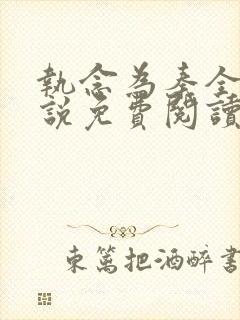 執念為秦全
說免費閱讀
東篱把酒醉書